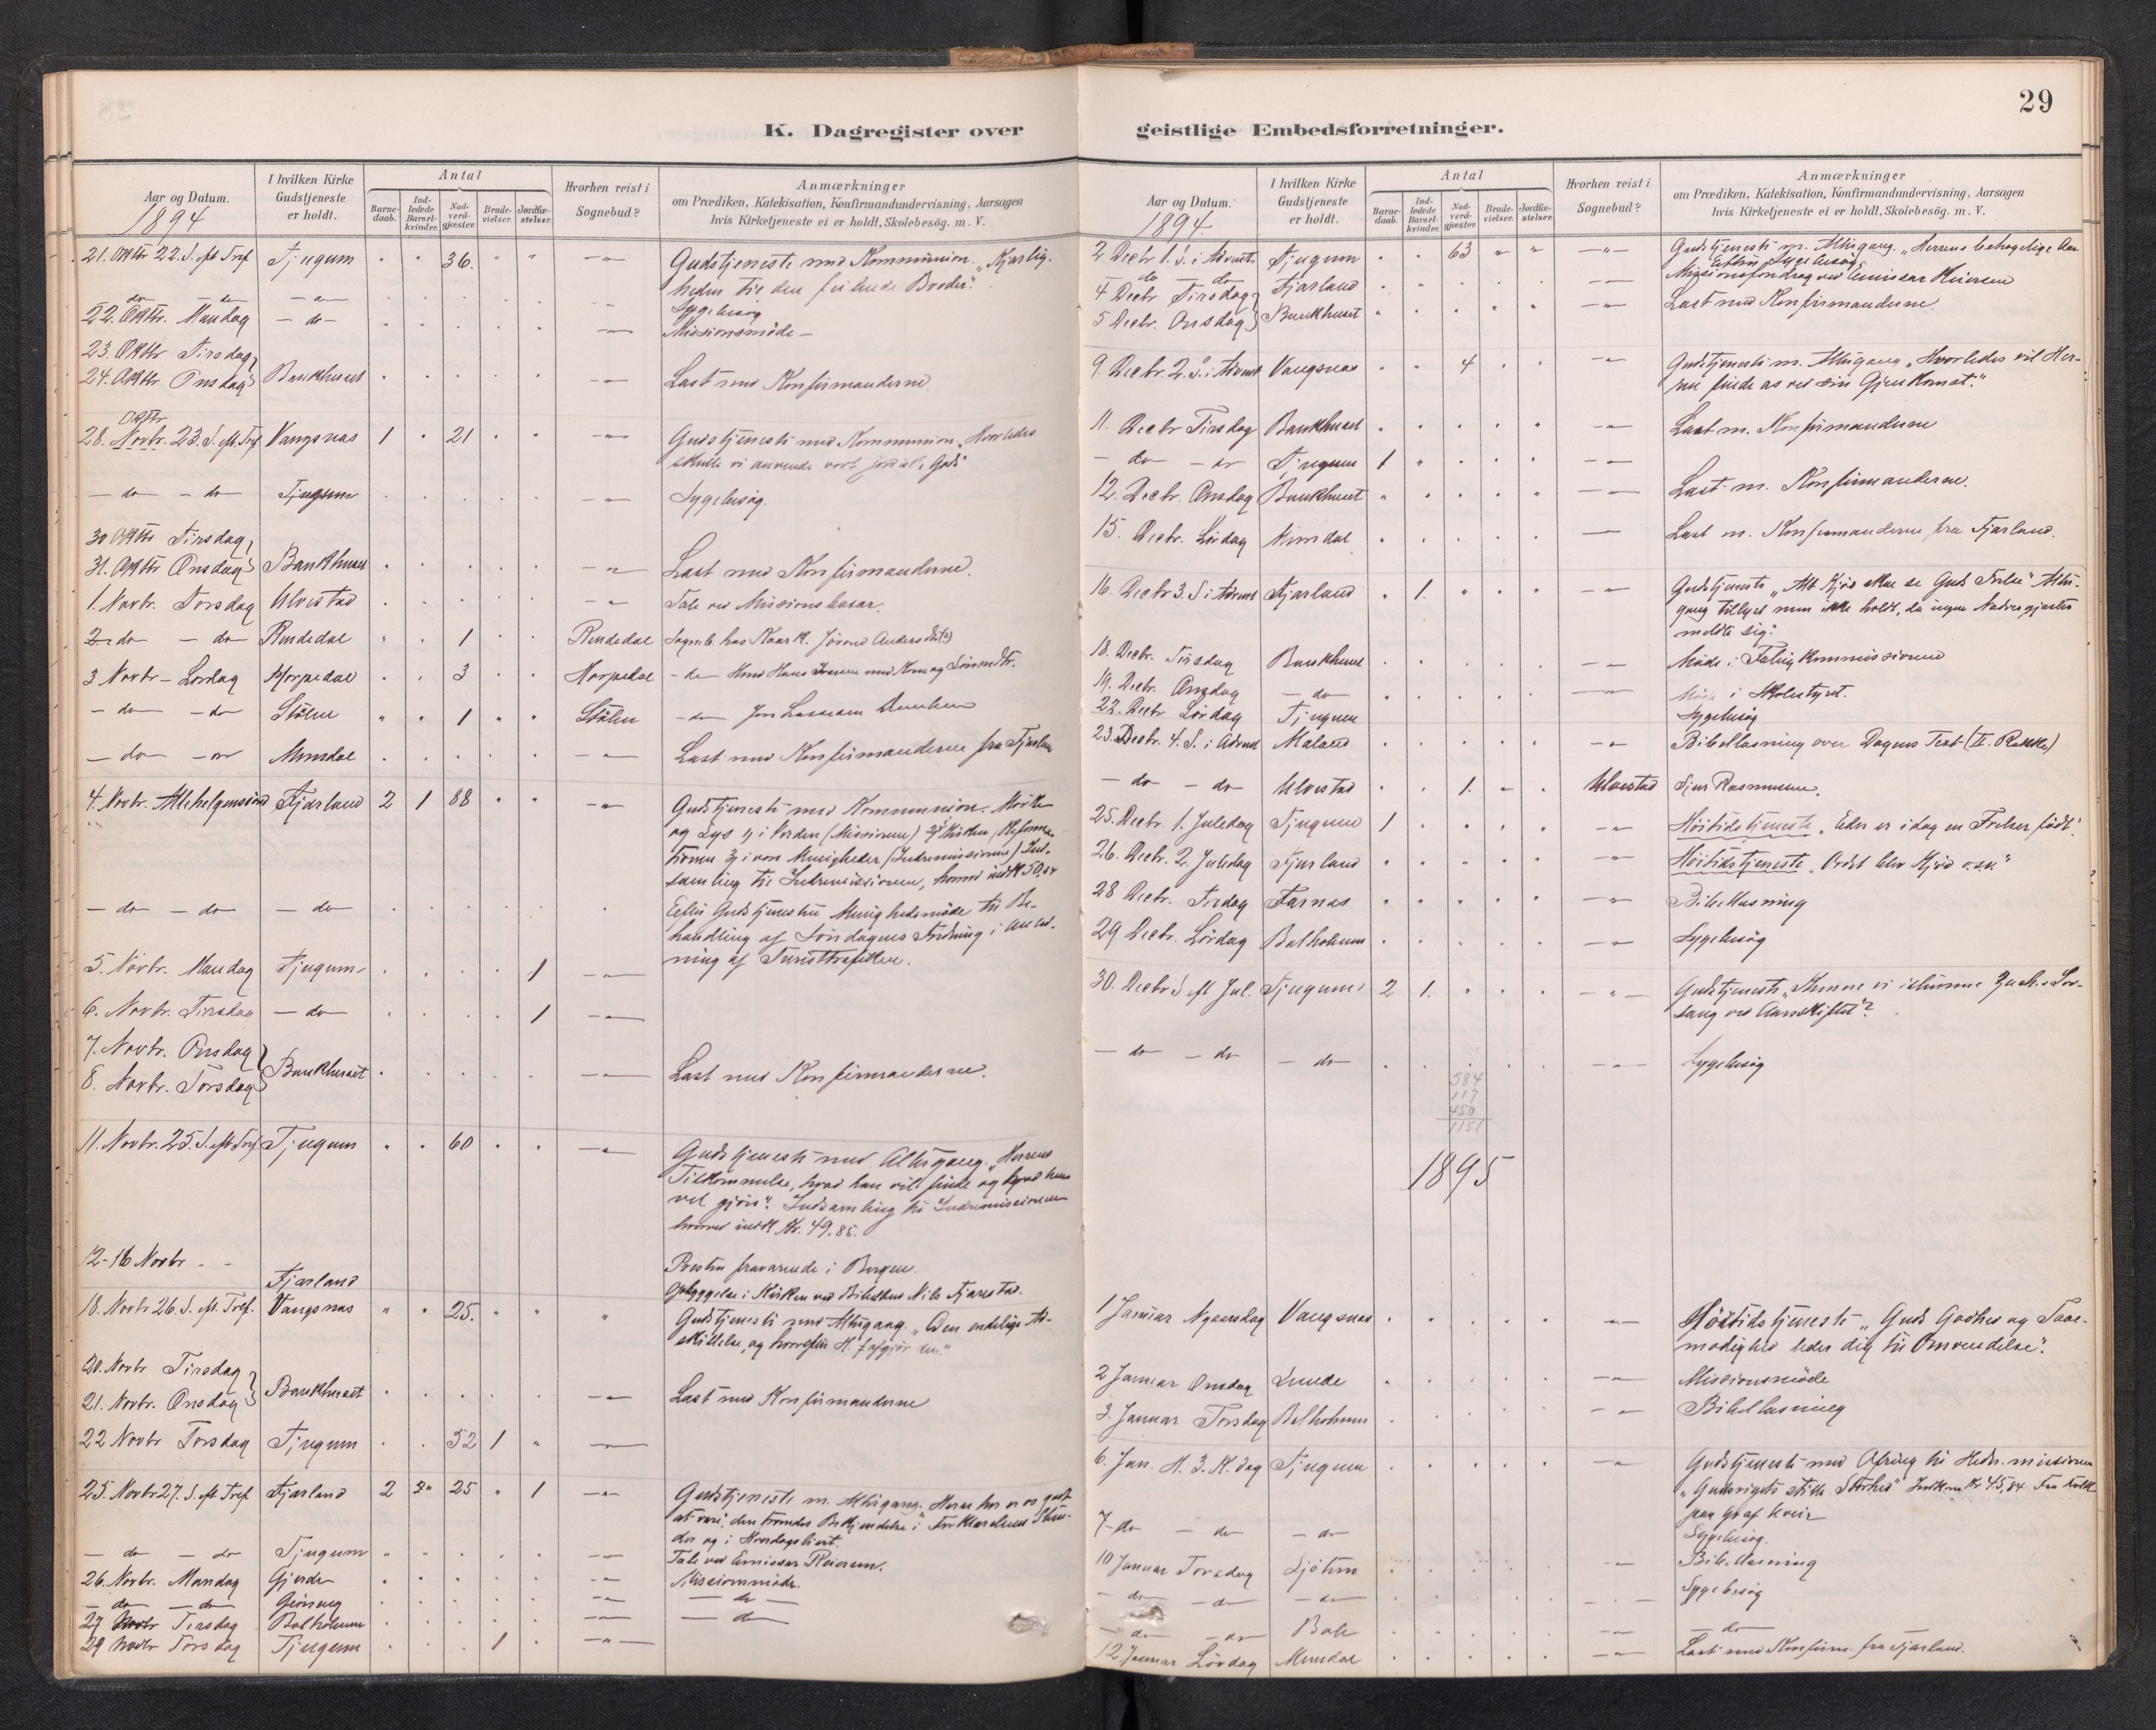 K. Dagregister over
Aar og Datum.
1894
I hvilken Kirke Gudstjeneste er holdt.
Antal
Barne-daab.
Ind-ledede Barsel-kvinder.
Nad-verd-gjester
Brude-vielser.
Jordfæ-stelser.
Hvorhen reist i Sognebud?
Anmærkninger
om Prædiken, Katekisation, Konfirmandundervisning, Aarsagen
hvis Kirketjeneste ei er holdt, Skolebesög. m. V.
21. Oktbr 22. S. eft Tref Tjugum " " 36. " " — " — Gudstjeneste med Kommunion. "Kjærlig-
heden til den feilende Broder."
— do — do — do Sygebesög
22. Oktbr. Mandag — do — Missionsmöde —
23. Oktbr Tirsdag
24. Oktbr Onsdag Bankhuset Læst med Konfirmanderne
Oktbr
28. Novbr. 23. S. eft. Tref. Vangsnæs 1 " 21 " " Gudstjeneste med Kommunion. "Hvorledes
skulle vi anvende vort jordiske Gods"
— do — do Tjugum Sygebesög.
30 Oktbr Tirsdag
31. Oktbr Onsdag Bankhuset Læst med Konfirmanderne.
1. Novbr. Torsdag Ulvestad Tale ved Missionsbasar.
2 do — do Rendedal " " 1 Rendedal Sogneb. hos Kaark. Jörond Andersdtr
3 Novbr — Lördag Horpedal 3 Horpedal — do
— do — do Stölen " " 1 " " Stölen — do
— do — do Mundal Læst med Konfirmanderne fra Fjærland
4. Novbr. Allehelgensönd Fjærland 2 1 88 " " Gudstjeneste med Kommunion. Mörke
og Lys 1) i Verden (Missionen) 2) i Kirken (Reforma-
tionen 3) i vor Menigheder (Indremissionen) Ind-
samling til Indremissionen,
— do — do — do Efter Gudstjenesten Menighedsmöde til Be-
handling af Söndagens Ordning i Anled-
ning af Turisttrafiken.
5. Novbr. Mandag Tjugum 1
6. Novbr. Tirsdag — do — 1
7. Novbr. Onsdag
8. Novbr. Torsdag Bankhuset Læst med Konfirmanderne.
11. Novbr. 25. S. eft Tref. Tjugum " " 60 " " Gudstjeneste med Altergang. "Herrens
Tilkommelse, hvad han vil finde og hvad han
vil gjöre". Indsamling til Indremissionen
Kr. 49.86.
12-16 Novbr — — Presten fraværende i Bergen.
Fjærland Opbyggelse i Kirken ved Nils Fjærestad.
18. Novbr 26. S. eft. Tref. Vangsnæs " " 25. " " Gudstjeneste med Altergang. "Den endelige Ad-
skillelse, og
20. Novbr Tirsdag
21. Novbr. Onsdag Bankhuset Læst med Konfirmanderne
22 Novbr Torsdag Tjugum 52 1 "
25. Novbr 27. S. eft Tref Fjærland 2 2 25 " 1 Gudstjeneste m. Altergang. "Herre her er os godt
at være", den troendes Bekjendelse i Forklarelsens Stun-
der og i Hverdagslivet.
— do — do Tjugum Tale ved Emissær Reiersen.
26. Novbr. Mandag Gjerde Missionsmöde.
— do — do — do —
27 Novbr Tirsdag Balholmen — do
29 Novbr Torsdag Tjugum 1
29
geistlige Embedsforretninger.
Aar og Datum.
1894.
I hvilken Kirke Gudstjeneste er holdt.
Antal
Barne-daab.
Ind-ledede Barsel-kvinder.
Nad-verd-gjester
Brude-vielser.
Jordfæ-stelser.
Hvorhen reist i Sognebud?
Anmærkninger
om Prædiken, Katekisation, Konfirmandundervisning, Aarsagen
hvis Kirketjeneste ei er holdt, Skolebesög. m. V.
2 Decbr 1. S. i Advent Tjugum " " 63 " " Gudstjeneste m. Altergang. "Herrens behagelige Aar
Efter Sygebesög
— do — do Fjærland Missionsforedrag ved Emissær Reiersen
4 Decbr Tirsdag
5 Decbr. Onsdag Bankhuset Læst med Konfirmanderne.
9. Decbr. 2. S. i Advent Vangsnæs " " 4 " " Gudstjeneste m. Altergang "Hvorledes vil Her-
ren finde os ved sin Gjenkomst."
11. Decbr Tirsdag Bankhuset Læst m. Konfirmanderne
— do — do Tjugum 1
12. Decbr. Onsdag Bankhuset Læst m. Konfirmanderne.
15. Decbr. Lördag Mundal Læst m. Konfirmanderne fra Fjærland.
16. Decbr 3. S i Advent Fjærland " 1. " " " Gudstjeneste "Alt Kjöd skal se Guds Frelse" Alter-
gang tillyst men ikke holdt, da ingen Nadvergjæster
meldte sig."
18. Decbr. Tirsdag Bankhuset Möde i Fattigkommissionen
19. Decbr. Onsdag — do — Möde i Skolestyret.
22. Decbr Lördag Tjugum Sygebesög
23. Decbr. 4. S. i Advent Maland Bibellæsning over Dagens Text (II. Række)
— do — do Ulvestad 1. Ulvestad Sjur Rasmussen.
25. Decbr. 1. Juledag Tjugum 1 Höitidstjeneste. "Eder er idag en Frelser födt".
26. Decbr. 2. Juledag Fjærland Höitidstjeneste "Ordet blev Kjöd o.s.v."
28 Decbr. Fredag Farnæs Bibellæsning
29 Decbr. Lördag Balholmen Sygebesög
30. Decbr S eft Jul. Tjugum 2 1. " " " Gudstjeneste "Kunne vi istemme Zach.s Lov-
sang ved Aarsskiftet"?
— do — do — do Sygebesög
584
117
450
1151
1895
1 Januar Nyaarsdag Vangsnæs Höitidstjeneste "Guds Godhed og Taal-
modighed leder dig til Omvendelse".
2 Januar Onsdag Lunde Missionsmöde
3. Januar Torsdag Balholmen Bibellæsning
6. Jan. H. 3. K. dag Tjugum Gudstjeneste med Ofring til Hedn. missionen
"Gudsrigets stille Storhed" Indkom Kr 45,84
7 — do — do — do Sygebesög.
10 Januar Torsdag Sjötun Bibellæsning
— do — do — do Sygebesög
— do — do Bale — do
12 Januar Lördag Mundal Læst med Konfirm. fra Fjærland.